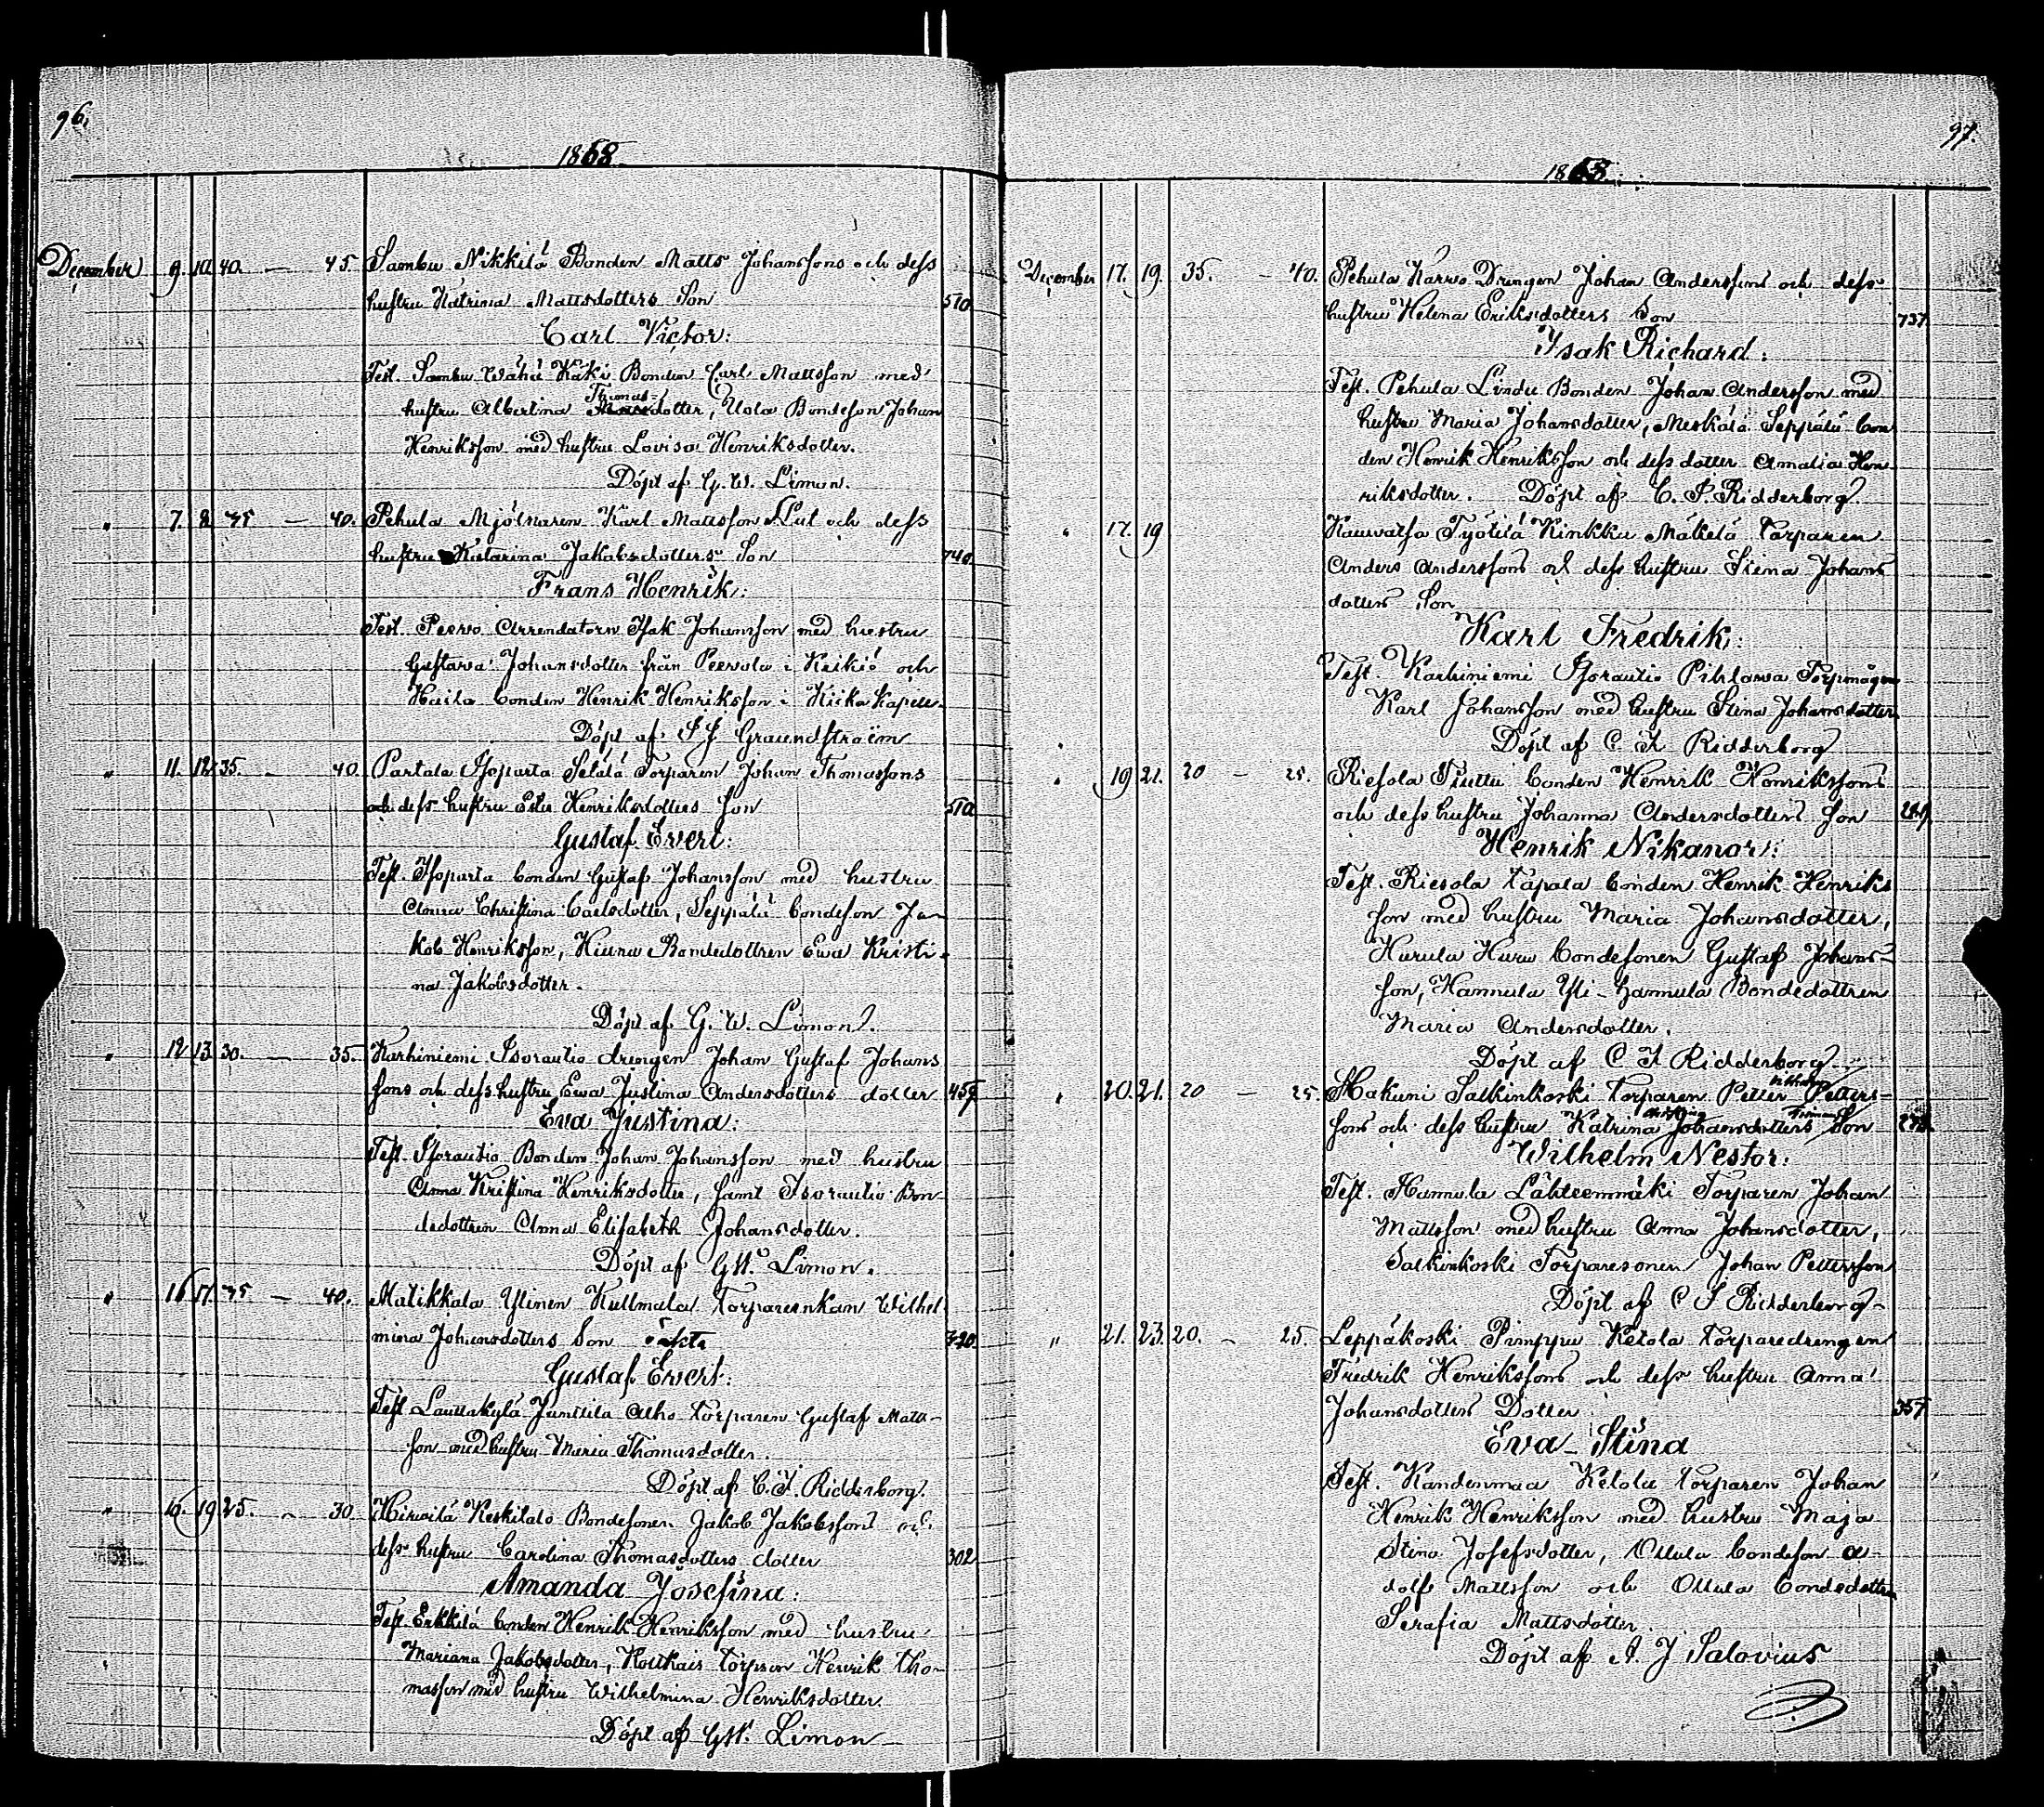 96.
1868.
December 9. 10. 40. — 45. Sambu Nikkilä Bonden Matts Johanssons och dess
hustru Katrina Mattsdotters Son 510.
Carl Victor:
Test. Sambu Wähä Käki Bonden Carl Mattsson med
Thomas-
hustru Albertina dotter, Uola Bondeson Johan
Henriksson med hustru Lovisa Henriksdotter.
Döpt af G. W. Limon.
" 7. 8. 35 — 40. Pehula Mjölnaren Karl Mattsson och dess
hustru Katarina Jakobsdotters Son 740.
Frans Henrik:
Test. Peervo Arrendatorn Isak Johansson med hustru
Gustava Johansdotter från Peervola i Keikiö och
bonden Henrik Henriksson i Kapell.
Döpt af
" 11. 12. 35. — 40. Partala Isoparta Setälä Torparen Johan Thomassons
och dess hustru Henriksdotters son 510
Gustaf Evert:
Test. Isoparta bonden Gustaf Johansson med hustru
Anna Christina Carlsdotter, Seppälä bondeson Ja-
kob Henriksson, Bondedottren Ewa Kristi-
na Jakobsdotter.
Döpt af G. W. Limon.
" 12. 13. 30. — 35. Karhiniemi Isorautio drengen Johan Gustaf Johans
sons och dess hustru Ewa Justina Andersdotters dotter 459
Eva Justina:
Test. Isorautio Bonden Johan Johansson med hustru
Anna Kristina Henriksdotter, samt Isorautio Bon-
dedottren Anna Elisabeth Johansdotter.
Döpt af GW. Limon.
" 16. 17. 35 — 40. Matikkala Ylinen Kullmala Torpareenkan Wilhel
mina Johansdotters Son oäkta 720.
Gustaf Evert:
Test Lauttakylä Junttila Alho torparen Gustaf Matts-
son med hustru Maria Thomasdotter.
Döpt af C. F. Ridderborg.
" 16. 19. 25. — 30. Hirvilä Keskitalo Bondesonen Jakob Jakobssons och
dess hustru Carolina Thomasdotters dotter 302
Amanda Josefina:
Test. Erkkilä bonden Henrik Henriksson med hustru
Mariana Jakobsdotter, torparen Henrik Tho-
masson med hustru Wilhelmina Henriksdotter.
Döpt af GW. Limon
97.
1868.
December 17. 19. 35. — 40. Pehula Karvo Drengen Johan Anderssons och dess
hustru Helena Eriksdotters Son 737.
Isak Richard:
Test. Pehula Lindu Bonden Johan Andersson med
hustru Maria Johansdotter, Meskala Seppälä bon
den Henrik Henriksson och dess dotter Amalia Hen
riksdotter. Döpt af C. F. Ridderborg.
" 17. 19 Kauvatsa Työtilä Kinkku Mäkelä Torparen
Anders Anderssons och dess hustru Stina Johans
dotters Son
Karl Fredrik:
Test. Karhiniemi Isorautio Pihlawa Torpmågen
Karl Johansson med hustru Stina Johansdotter
Döpt af C F Ridderborg
" 19 21. 20 — 25. Riesola Tuttu bonden Henrik Henrikssons
och dess hustru Johanna Andersdotters son 249.
Henrik Nikanor:
Test. Riesola Tapala bonden Henrik Henriks
son med hustru Maria Johansdotter,
Hurula Huru bondesonen Gustaf Johans-
son, Hannula Yli-hannula Bondedottren
Maria Andersdotter.
Döpt af C F Ridderborg
" 20. 21. 20 — 25. Hakuni Salkinkoski torparen Petter Petters-
sons och dess hustru Katrina Johansdotters Son
Wilhelm Nestor:
Test. Hannula Lähteenmäki Torparen Johan
Mattsson med hustru Anna Johansdotter,
Salkinkoski Torparesonen Johan Pettersson
Döpt af C F Ridderborg
" 21. 23. 20. — 25. Leppäkoski Pimppu Ketola torparedrengen
Fredrik Henrikssons och dess hustru Anna
Johansdotters Dotter 357
Eva Stina
Test. Kandenmaa Ketola torparen Johan
Henrik Henriksson med hustru Maja
Stina Josefsdotter, Ollula bondeson A-
dolf Mattsson och Ollula bondedottren
Serafia Mattsdotter.
Döpt af A. J Salovius